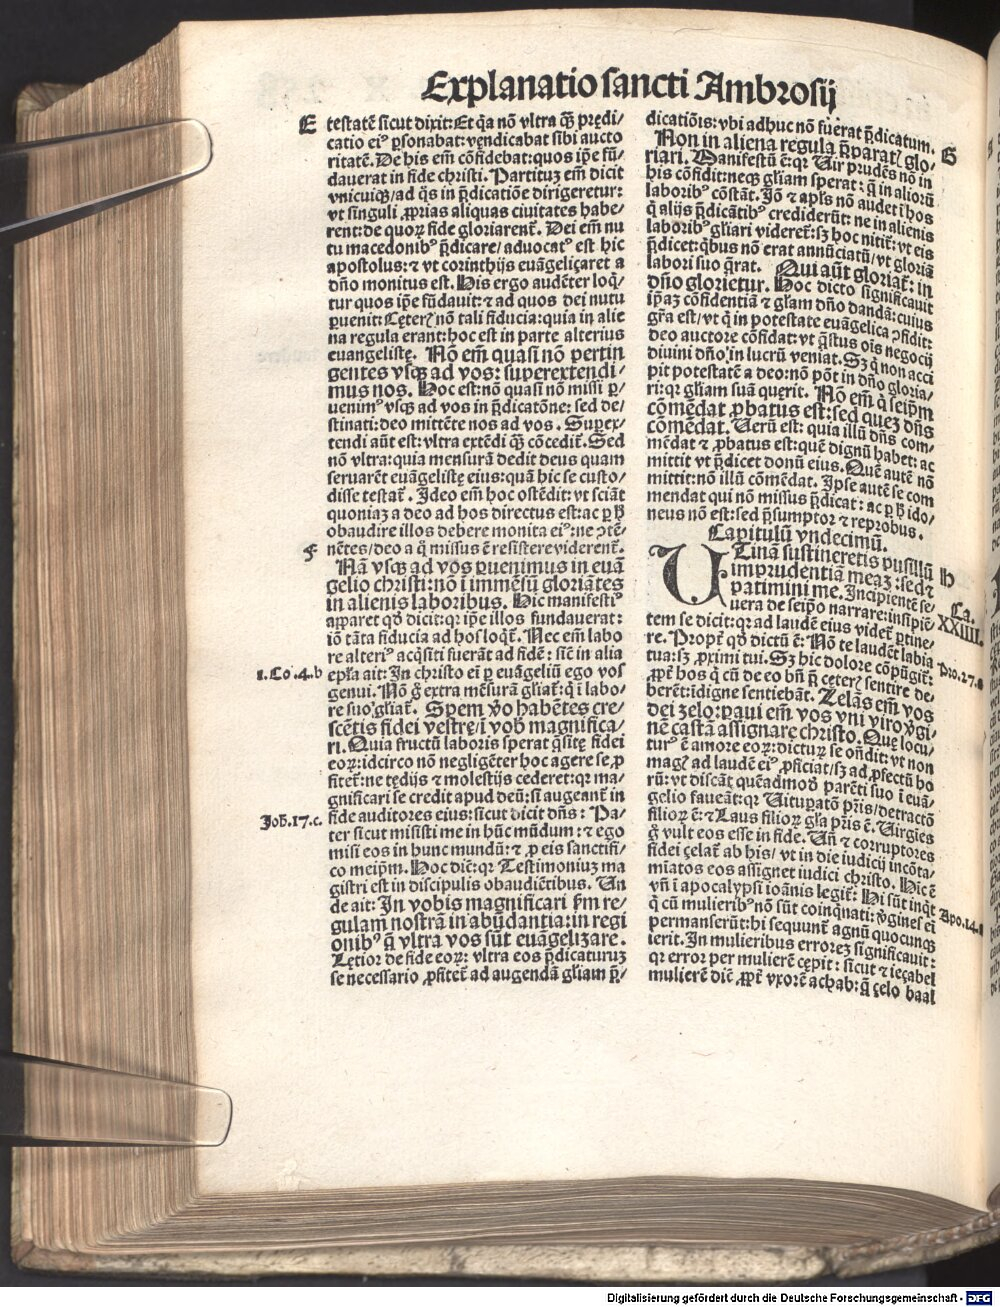 Explanatio sancti Ambrosij
E
testatē sicut dixit: Et qa nō vltra q̄ȝ prędi/
catio eiꝰ ꝑsonabat: vęndicabat sibi aucto
ritatē. De his em̄ cōfidebat: quos ip̄e fū/
dauerat in fide christi. Partituꝫ em̄ dicit
vnicuiqꝫ/ad qs̄ in p̄dicatiōe dirigeretur:
vt singuli ꝓprias aliquas ciuitates habe/
rent: de quoꝝ fide gloriarent᷑. Dei em̄ nu
tu macedonibꝰ p̄dicare/aduocatꝰ est hic
apostolus: ⁊ vt corinthijs euāgeliçaret a
dn̄o monitus est. His ergo audēter loq̄/
tur quos ip̄e fūdauit: ⁊ ad quos dei nutu
ꝑuenit: Cęteꝝ nō tali fiducia: quia in alie
na regula erant: hoc est in parte alterius
euangelistę. Nō em̄ quasi nō pertin
gentes vsqꝫ ad vos: superextendi/
mus nos. Hoc est: nō quasi nō missi ꝑ/
uenimꝰ vsqꝫ ad vos in p̄dicatōne: sed de/
stinati: deo mittēte nos ad vos. Supex/
tendi aūt est: vltra extēdi q̄ȝ cōcedit᷑. Sed
nō vltra: quia mensurā dedit deus quam
seruarēt euāgelistę eius: quā hic se custo/
disse testat᷑. Ideo em̄ hoc ostēdit: vt sciāt
quoniaꝫ a deo ad hos directus est: ac ꝑ h̄
obaudire illos debere monita eiꝰ: ne ꝯtē-
F
nētes/deo a q̄ missus ē resistere viderent᷑.
Nā vsqꝫ ad vos ꝑuenimus in euā
gelio christi: nō ī immēsū gloriātes
in alienis laboribus. Hic manifestiꝰ
apparet qd̄ dicit: qr ip̄e illos fundauerat:
iō tāta fiducia ad hos loqt᷑. Nec em̄ labo
re alteriꝰ acq̄siti fuerāt ad fidē: sic̄ in alia
1.Co.4.b
epl̄a ait: In christo em̄ ꝑ euāgeliū ego vos
genui. Nō ḡ extra mēsurā gl̄iat᷑: q̄ ī labo-
re suo gl̄iat᷑. Spem v̄o habētes cre/
scētis fidei vestrę/ī vob̄ magnifica/
ri. Quia fructū laboris sperat q̄sitę fidei
eoꝝ: idcirco nō negligēter hoc agere se ꝓ
fitet᷑: ne tędijs ⁊ molestijs cederet: qr ma/
gnificari se credit apud deū: si augeant᷑ in
Joh̄.17.c.
fide auditores eius: sicut dicit dn̄s: Pa/
ter sicut misisti me in hūc mūdum: ⁊ ego
misi eos in hunc mundū: ⁊ ꝓ eis sanctifi/
co meip̄m. Hoc diē: qr Testimoniuꝫ ma
gistri est in discipulis obaudiētibus. Un
de ait: In vobis magnificari ẜm re/
gulam nostrā in abūdantia: in regi
onibꝰ q̄ vltra vos sūt euāgelizare.
Lętior de fide eoꝝ: vltra eos p̄dicaturuꝫ
se necessario ꝓfitet᷑ ad augendā gl̄iam p̄/
dicatiōis: vbi adhuc nō fuerat p̄dicatum.
G
Non in aliena regula p̄parat᷑ glo/
riari. Manifestū ē: qr Uir prudēs nō in
his cōfidit: necqꝫ gl̄iam sperat: q̄ in alioꝝ
laboribꝰ cōstāt. Jō ⁊ apl̄s nō audet ī hos
q̄ alijs p̄dicātibꝰ crediderūt: ne in alienis
laboribꝰ gl̄iari videret᷑: sꝫ hoc nitit᷑: vt eis
p̄dicet: qbus nō erat annūciatū/vt gloriā
labori suo q̄rat. Qui aūt gloriat᷑: in
dn̄o glorietur. Hoc dicto significauit
ip̄aꝫ cōfidentiā ⁊ gl̄am dn̄o dandā: cuius
gr̄a est/vt q̄ in potestate euāgelica ꝯfidit:
deo auctore cōfidat: vt q̄stus ois negocij
diuini dn̄o in lucrū veniat. Sꝫ q̄ non acci
pit potestatē a deo: nō pōt in dn̄o gloria/
ri: qr gl̄iam suā quęrit. Nō em̄ q̄ seip̄m
cōmēdat ꝓbatus est: sed queꝫ dn̄s
cōmēdat. Uerū est: quia illū dn̄s com/
mēdat ⁊ ꝓbatus est: quē dignū habet: ac
mittit vt p̄dicet donū eius. Quē autē nō
mittit: nō illū cōmēdat. Ipse autē se com
mendat qui nō missus p̄dicat: ac ꝑ h̄ ido/
neus nō est: sed p̄sumptor ⁊ reprobus.
Capitulū vndecimū.
UTinā sustineretis pusillū
H
imprudentiā meaꝫ: sed ⁊
patimini me. Incipientē se/
Ca.
XXIIII.
uera de seip̄o narrare: insipiē/
tem se dicit: qr ad laudē eius videt᷑ ꝑtine/
re. Propt᷑ qd̄ dictū ē: Nō te laudēt labia
Pro.27.a
tua: sꝫ ꝓximi tui. Sꝫ hic dolore cōpūgit᷑:
ꝓpt᷑ hos q̄ cū de eo bn̄ p̄ cęteꝝ sentire de-
berēt: īdigne sentiebāt. Zelās em̄ vos
dei zelo: paui em̄ vos vni viro v̓gi-
nē castā assignare christo. Quę locu/
turꝰ ē amore eoꝝ: dictuꝝ se on̄dit: vt non
magꝭ ad laudē eiꝰ ꝓficiat/sꝫ ad ꝓfectū ho
rū: vt discāt quēadmod̄ parēti suo ī euā/
gelio faueāt: qr Uitupatō pr̄is/detractō
filioꝝ ē: ⁊ Laus filioꝝ gl̄a pr̄is ē. Uirgīes
ḡ vult eos esse in fide. Un̄ ⁊ corruptores
fidei çelat᷑ ab his/vt in die iudicij incōta/
miatos eos assignet iudici christo. Hic ē
vn̄ ī apocalypsi ioānis legit᷑: Hi sūt inqt
Apo.14.a
q̄ cū mulieribꝰ nō sūt coinqnati: v̓gines ei
permanserūt: hi sequunt᷑ agnū quocunqꝫ
ierit. In mulieribus erroreꝫ significauit:
qr error per mulierē cępit: sicut ⁊ ieçabel
mulierē diē ꝓpt᷑ vxorē achab: q̄ çelo baal
Digitalisierung gefördert durch die Deutsche Forschungsgemeinschaft - DFG